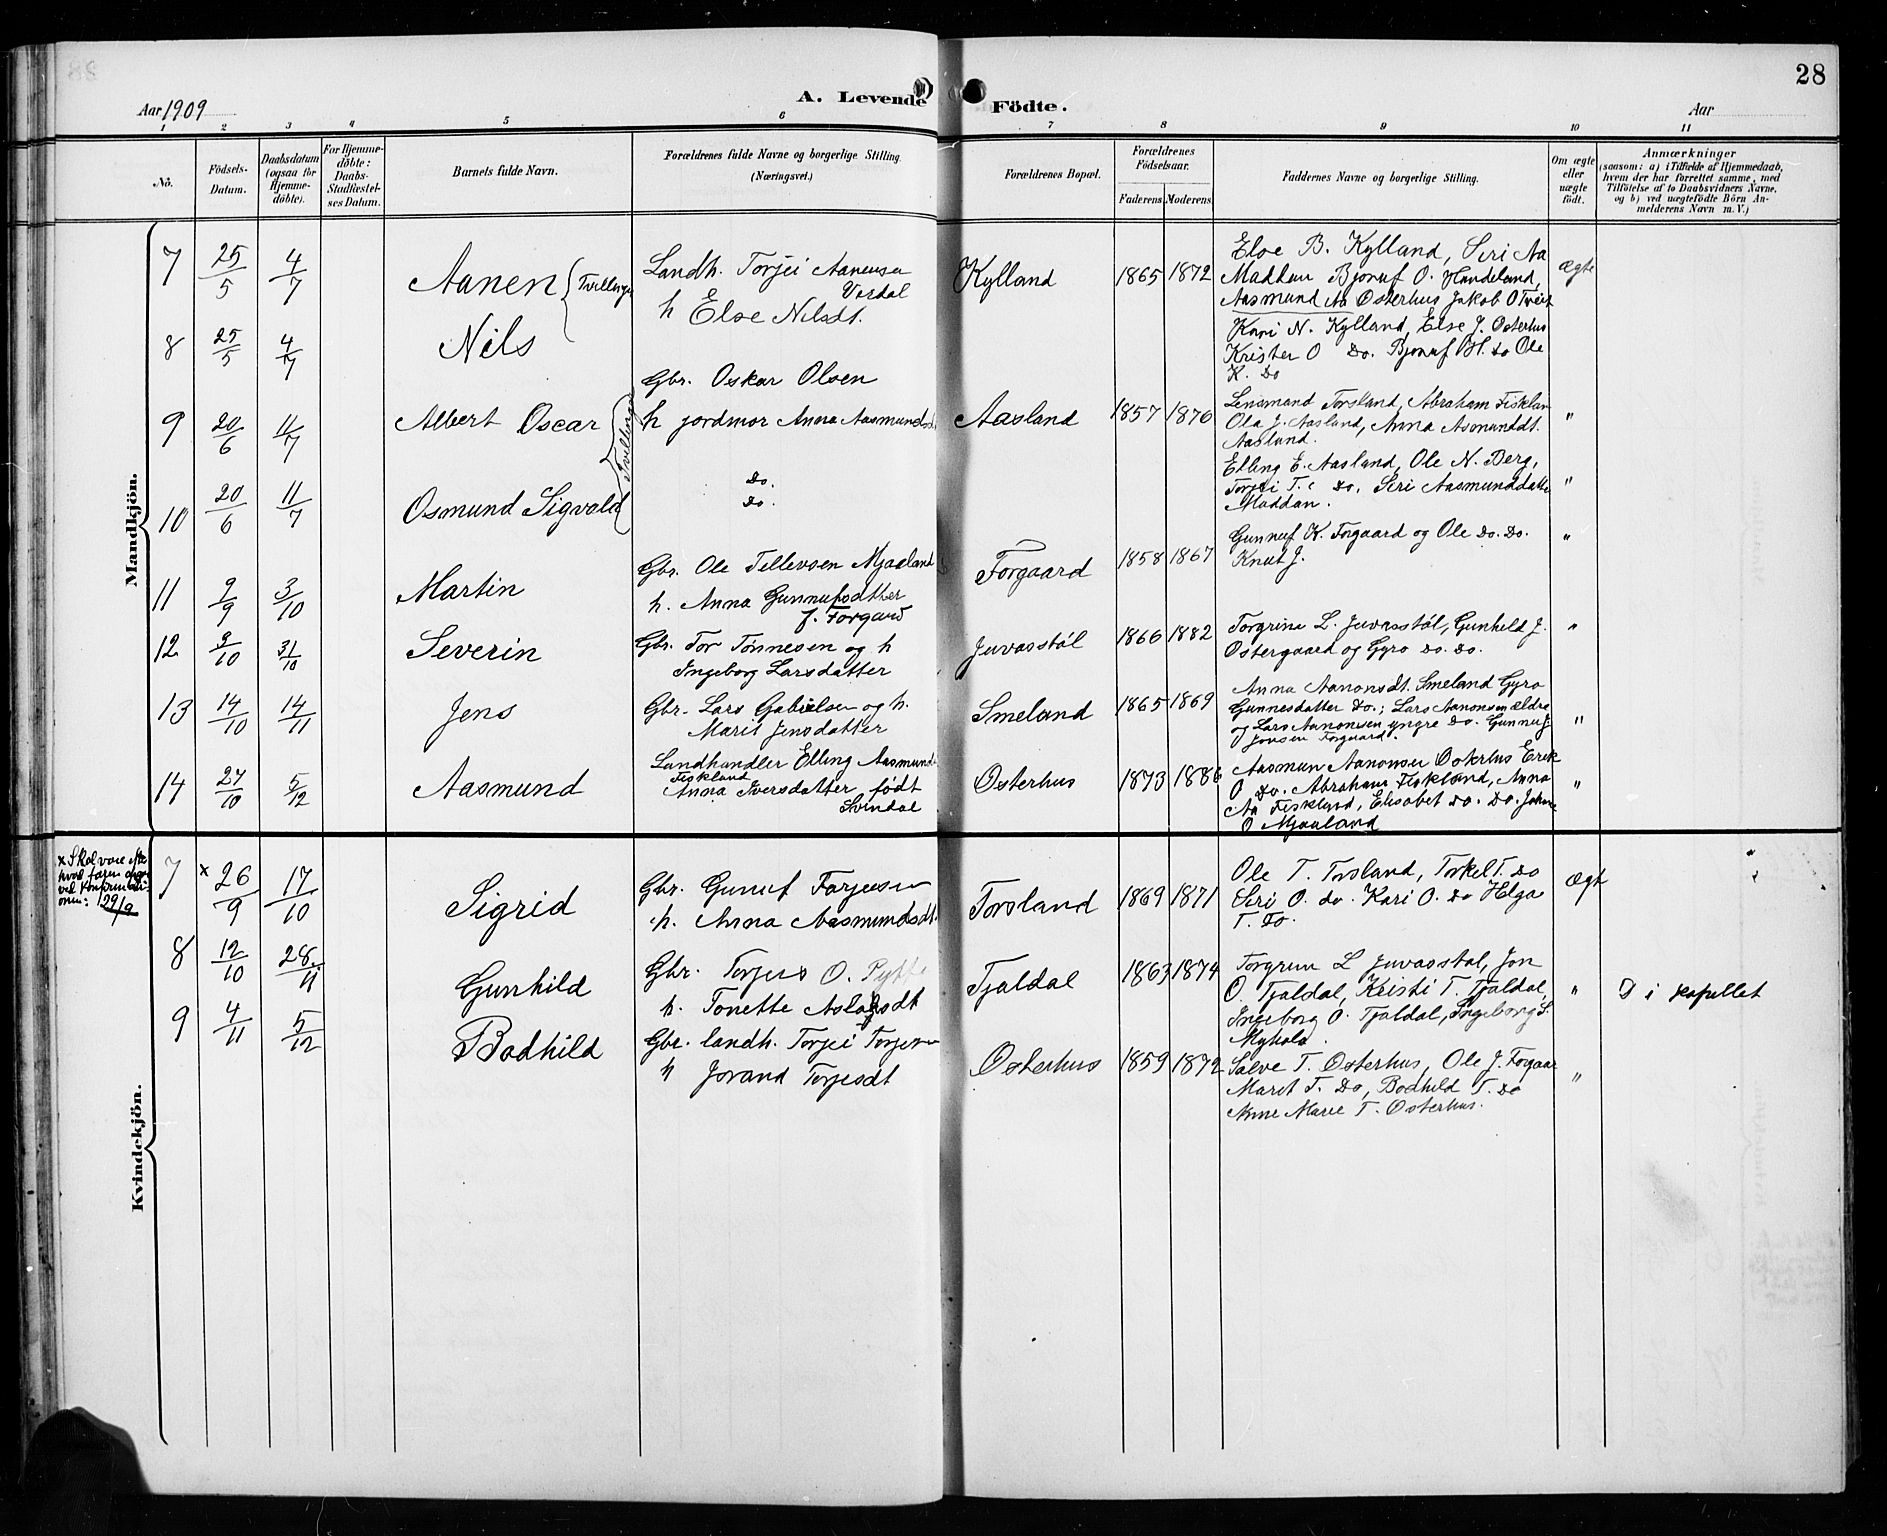 28
Aar 1909
A. Levende Födte.
Aar
1 2 3 4 5 6 7 8 9 10 11
No.
Födsels-Datum.
Daabsdatum (ogsaa for Hjemme-döbte).
For Hjemme-döbte: Daabs-Stadfæstel-ses Datum.
Barnets fulde Navn.
Forældrenes fulde Navne og borgerlige Stilling. (Næringsvei.)
Forældrenes Bopæl.
Forældrenes Födselsaar.
Faderens Moderens
Faddernes Navne og borgerlige Stilling.
Om ægte eller uægte födt.
Anmærkninger
(saasom: a) i Tilfælde af Hjemmedaab,
hvem der har forrettet samme, med
Tilföielse af to Daabsvidners Navne,
og b) ved uægtefödte Börn An-
melderens Navn m. V.)
Mandkjön.
7 25/5 4/7 Aanen Tvillinger
Landh. Torjei Aanensen
h Else Nilsdt.
Kylland 1865 1872
Else B. Kylland, Siri Aa
Maddan Bjonuf O. Handeland,
Aasmund Aa Osterhus Jakob O Tveit
Ægte
8 25/5 4/7 Nils
Kari N. Kylland, Else J. Osterhus
Krister O Do. Bjonuf H. Do Ole
K. Do
9 20/6 11/7 Albert Oscar Tvillinger
Gbr. Oskar Olsen
h jordmor Anna Aasmundsd.
Aasland 1857 1870
Lensmand Torsland, Abraham Fisklan
Ola J. Aasland, Anna Asmunddt.
Aasland.
"
10 20/6 11/7 Osmund Sigvald
Do.
Do.
Elling E. Aasland, Ole N. Berg,
Torjei T. Do. Siri Aasmunddatter
Maddan.
"
11 9/9 3/10 Martin
Gbr. Ole Tellevsen Mjaaland
h. Anna Gunnufsdatter
f. Forgaard
Forgaard 1858 1867
Gunnuf K. Forgaard og Ole Do. Do.
Knut J.
"
12 9/10 31/10 Severin
Gbr. Tor Tönnesen og h
Ingeborg Larsdatter
Juvasstöl 1866 1882
Torgrine L. Juvasstöl, Gunheld J.
Ostergaard og Gyro Do. Do.
"
13 14/10 14/11 Jens
Gbr. Lars Gabrielsen og h.
Marit Jensdatter
Smeland 1865 1869
Anna Aanonsdt. Smeland Gyro
Gunnesdatter Do.; Lars Aanonsen ældre
og Lars Aanonsen yngre Do. Gunnuf
Jonsen Forgaard.
"
14 27/10 5/12 Aasmund
Landhandler Elling Aasmunds.
Fiskland
Anna Iversdatter født
Svindal
Osterhus 1873 1886
Aasmun Aanonsen Osterhus Erik
O Do. Abraham Fiskland, Anna
Aa Fiskland, Elisabet Do. Do. Johne
O Mjaaland
"
Kvindekjön.
x Skal være efter
hvad faren opgav
ved konfirmati-
onen: 29/9
7 x 26/9 17/10 Sigrid
Gbr. Gunuf Torjesen
h. Anna Aasmundsdt.
Torsland 1869 1871
Ole T. Torsland, Torkel T. Do
Siri O. Do. Kari O. Do Helga
T. To.
Ægt
"
8 12/10 28/11 Gunhild
Gbr. Torjus O.
h. Tonette Aslagsdt
Tjaldal 1863 1874
Torgrun L Juvasstøl, Jon
O. Tjaldal, Kristi T. Tjaldal,
Ingeborg O. Tjaldal, Ingeborg S.
"
D i kapellet
9 4/11 5/12 Bodhild
Gbr. landh. Torjei Torjesen
h Jorand Torjesdt
Osterhus 1859 1872
Salve T. Osterhus, Ole J. Forgaar
Marit T. Do, Bodhild T. Do
Anne Marie T. Osterhus.
"